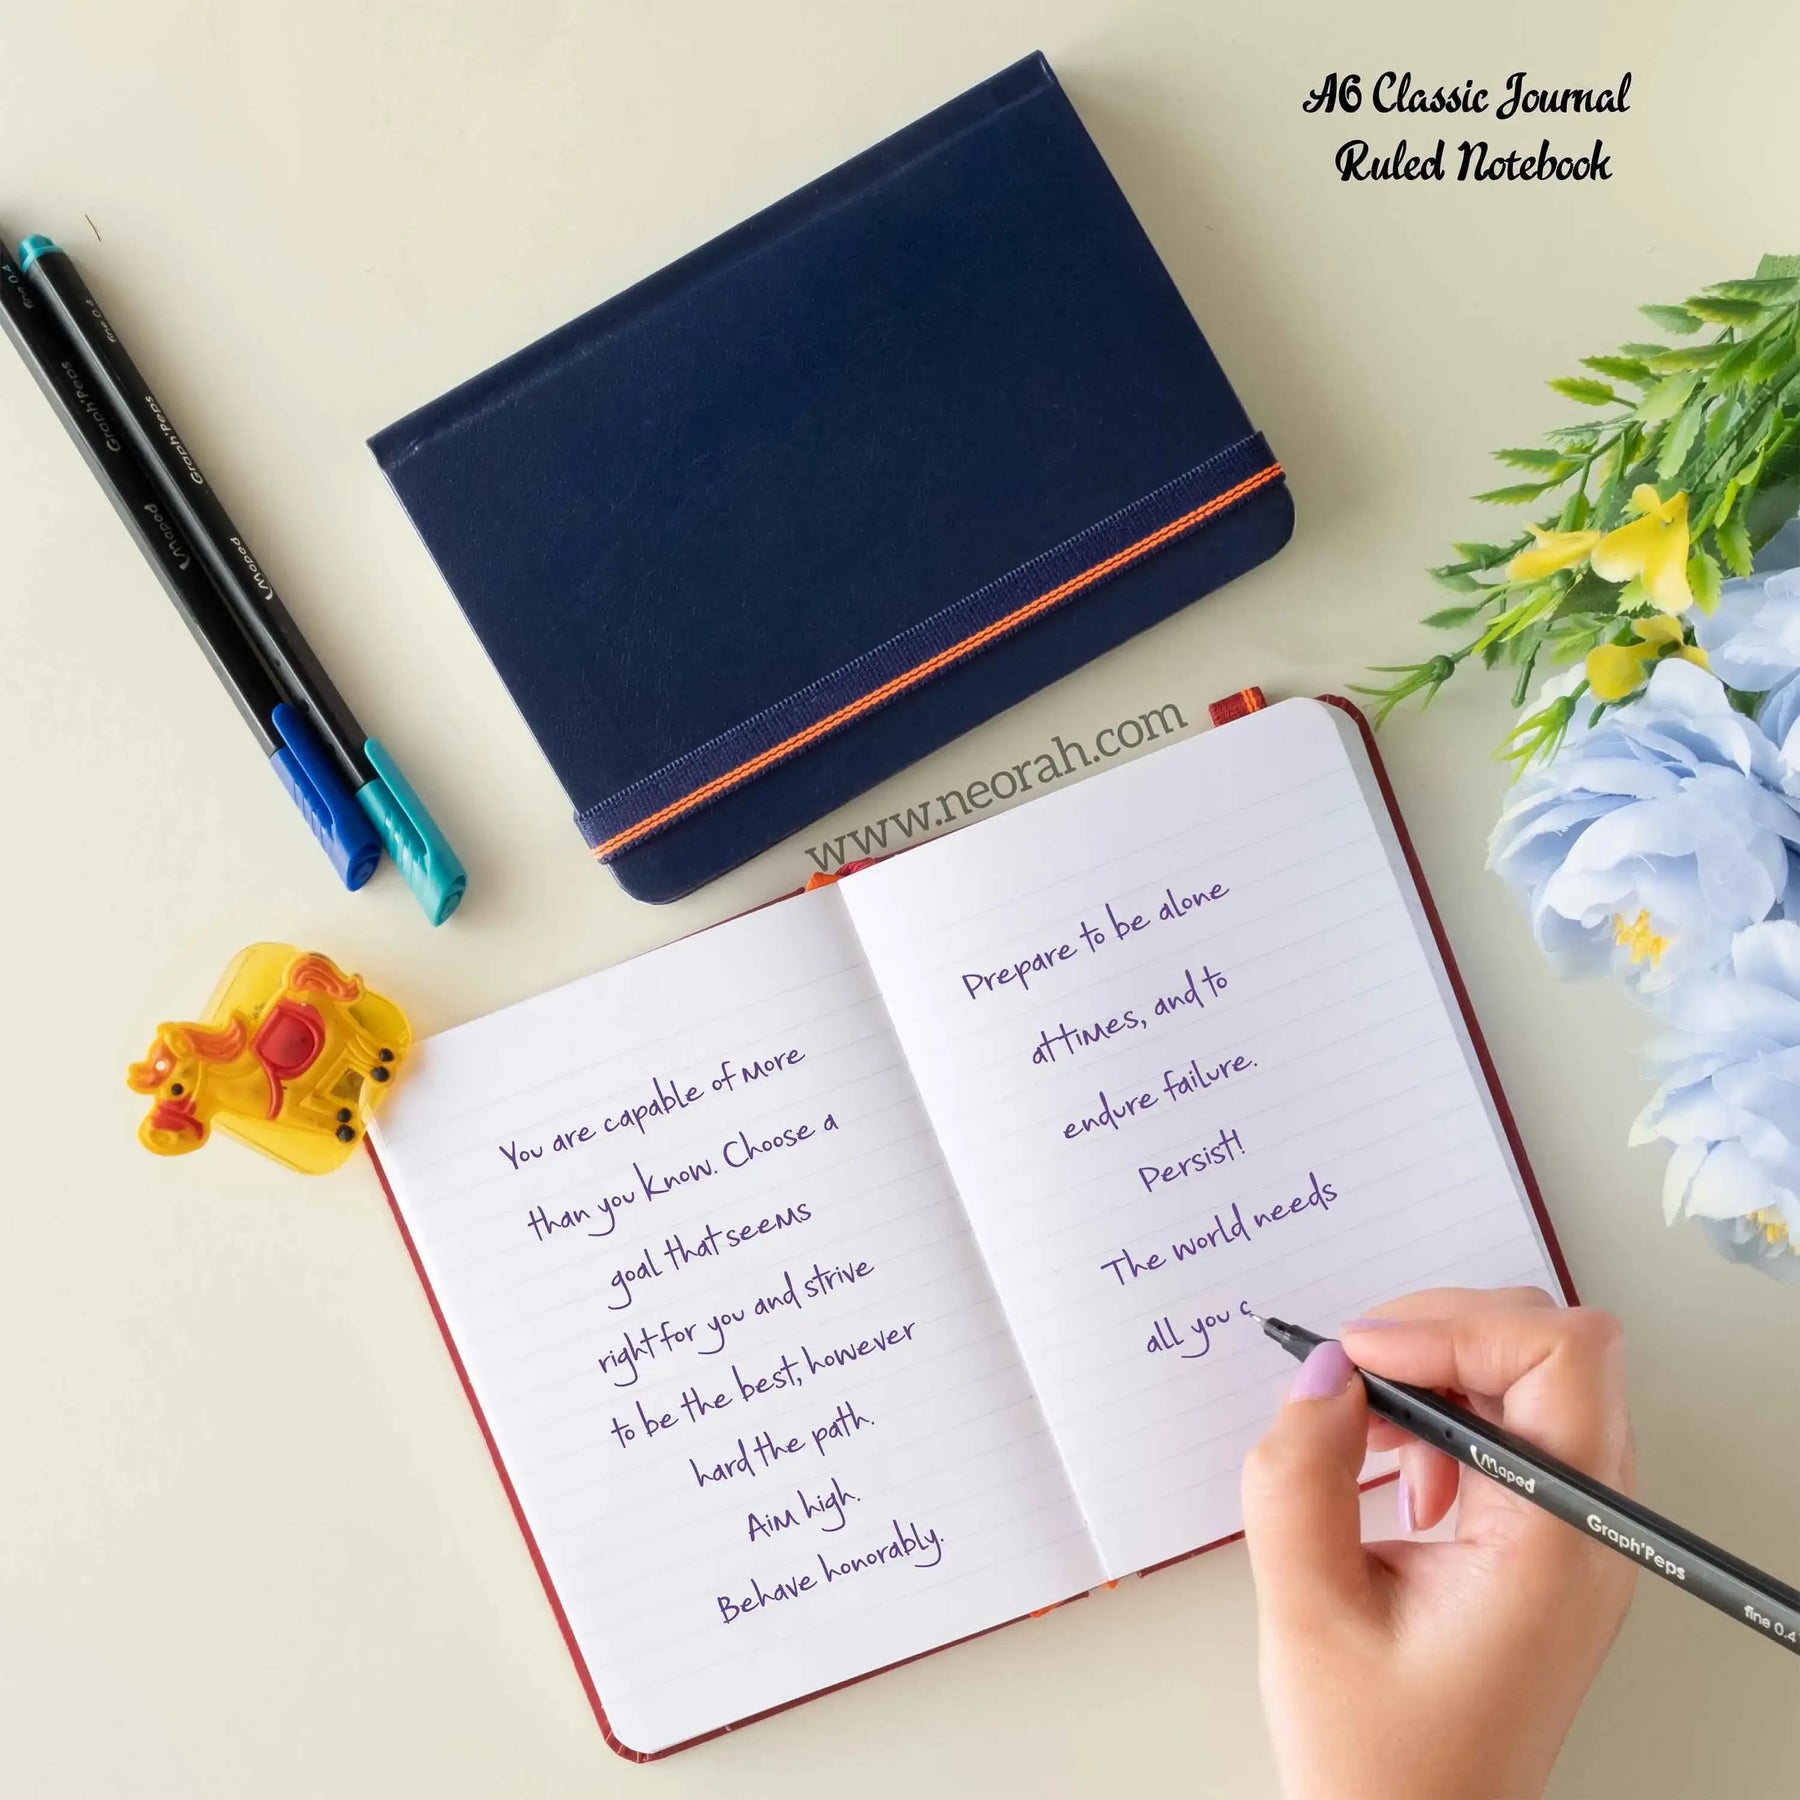 A6 Classic Journal
Ruled Notebook
fine 0.4
Graph'Peps
Maped
fine 0.4
Graph'Peps
Maped
www.neorah.com
You are capable of more
than you know. Choose a
goal that seems
right for you and strive
to be the best, however
hard the path.
Aim high.
Behave honorably.
Prepare to be alone
at times, and to
endure failure.
Persist!
The world needs
all you c
Maped
Graph'Peps
fine 0.4